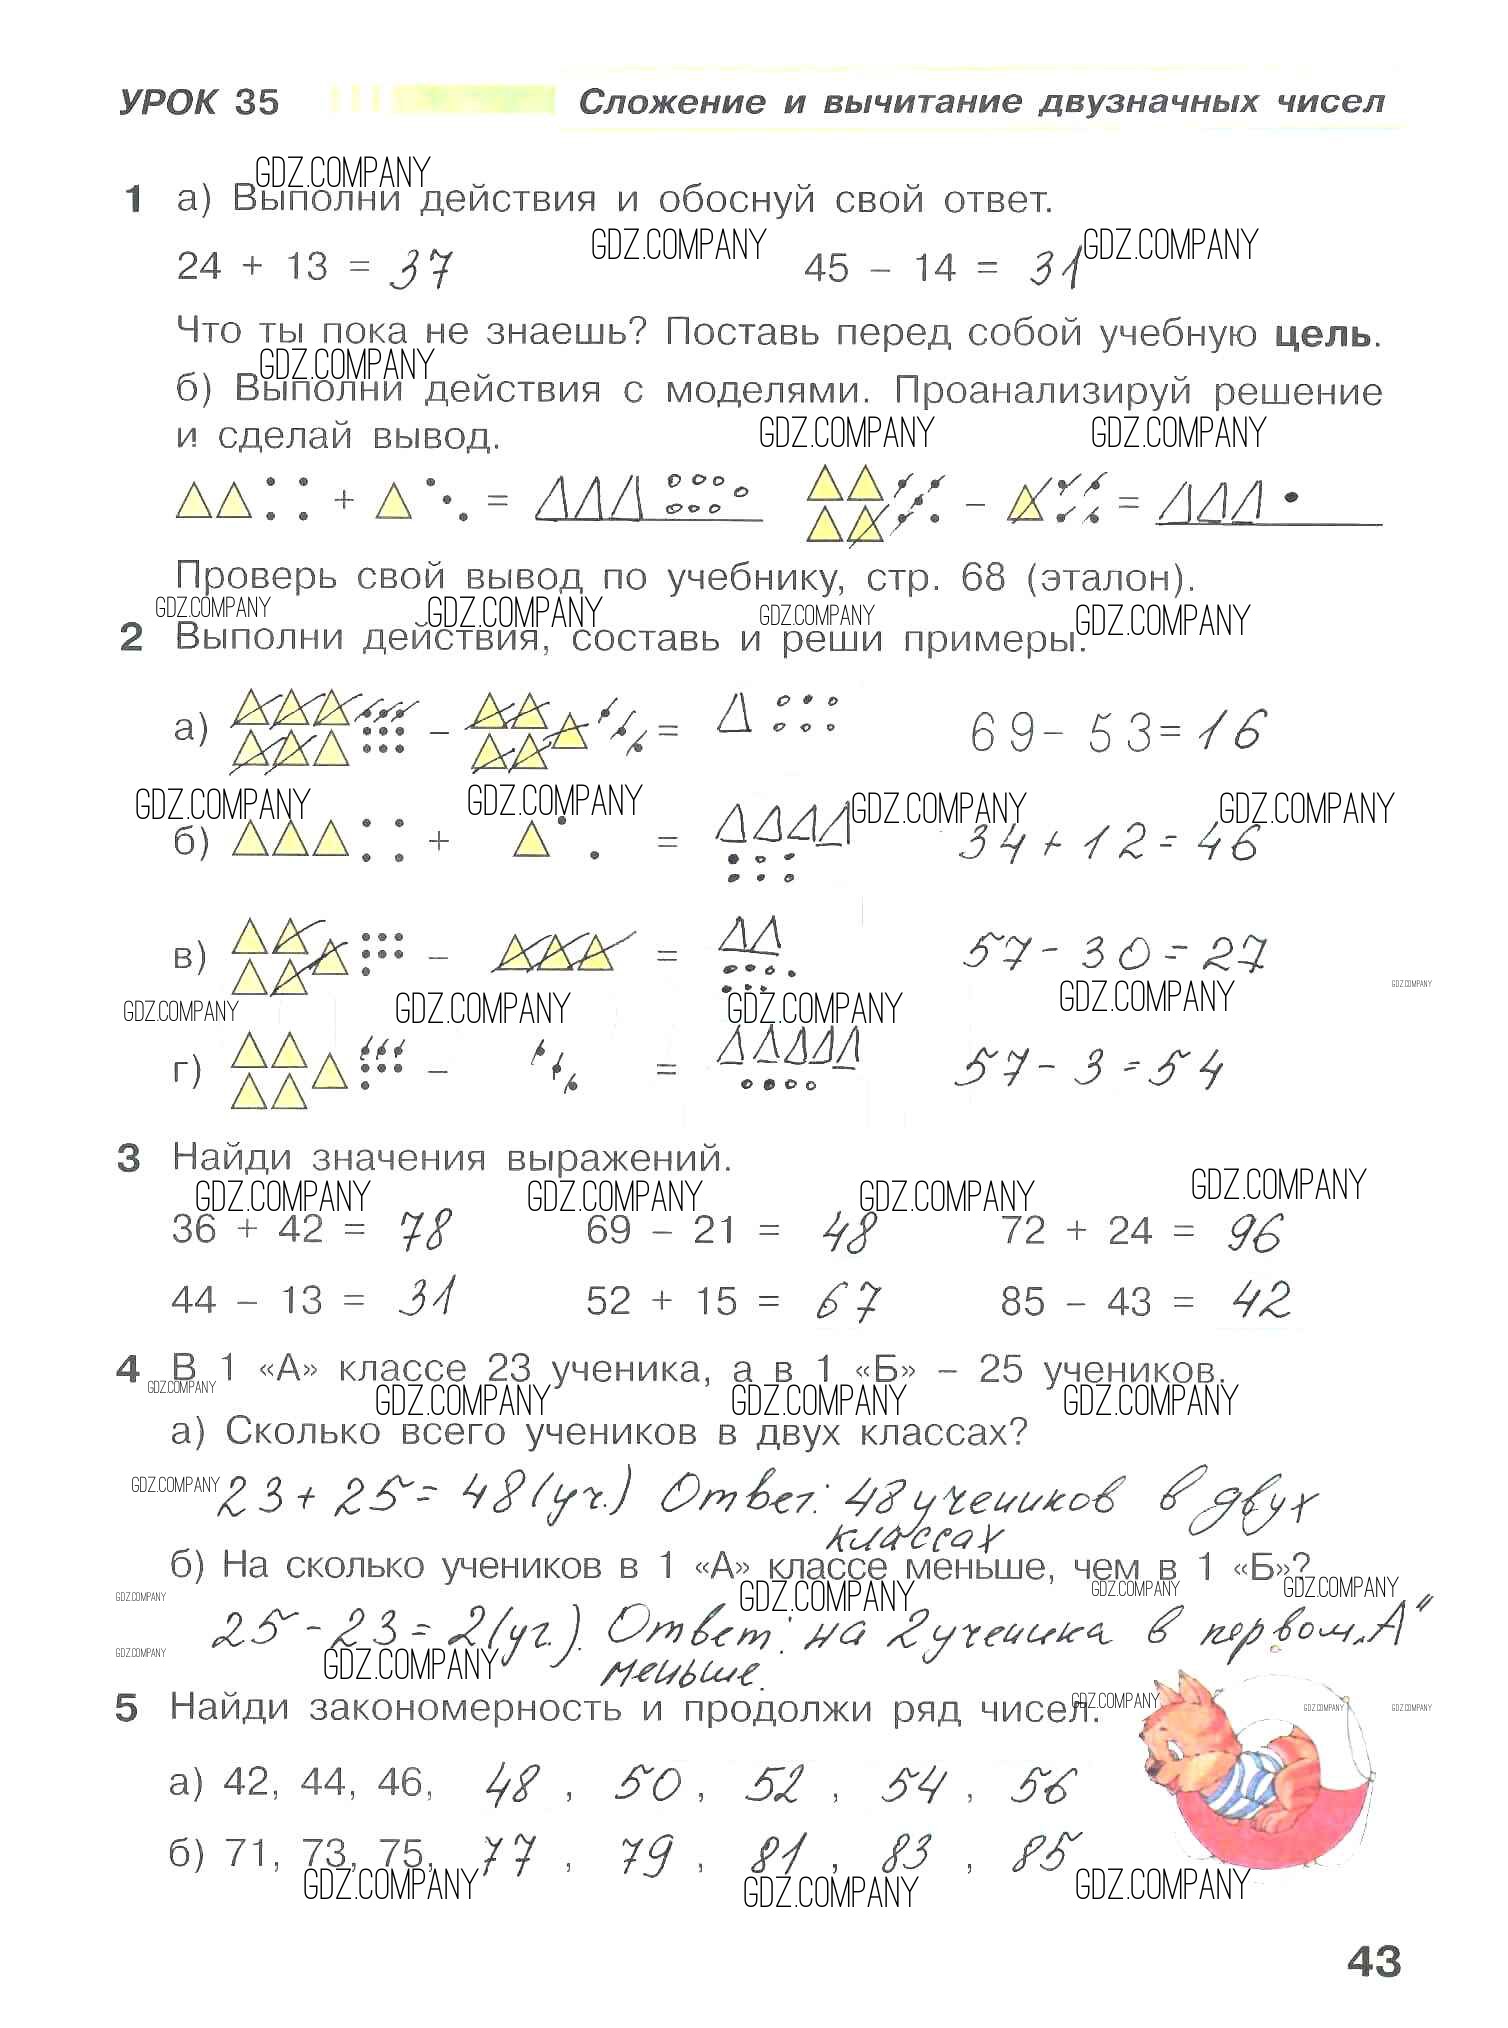 УРОК 35 Сложение и вычитание двузначных чисел
GDZ.COMPANY
1 а) Выполни действия и обоснуй свой ответ.
GDZ.COMPANY GDZ.COMPANY
24 + 13 = 37 45 – 14 = 31
Что ты пока не знаешь? Поставь перед собой учебную цель.
GDZ.COMPANY
б) Выполни действия с моделями. Проанализируй решение
и сделай вывод.
GDZ.COMPANY GDZ.COMPANY
+ = – =
Проверь свой вывод по учебнику, стр. 68 (эталон).
GDZ.COMPANY GDZ.COMPANY GDZ.COMPANY GDZ.COMPANY
2 Выполни действия, составь и реши примеры.
а) – = 69 – 53 = 16
GDZ.COMPANY GDZ.COMPANY GDZ.COMPANY GDZ.COMPANY
б) + = 34 + 12 = 46
в) – = 57 – 30 = 27
GDZ.COMPANY GDZ.COMPANY GDZ.COMPANY GDZ.COMPANY GDZ.COMPANY
г) – = 57 – 3 = 54
3 Найди значения выражений.
GDZ.COMPANY GDZ.COMPANY GDZ.COMPANY GDZ.COMPANY
36 + 42 = 78 69 – 21 = 48 72 + 24 = 96
44 – 13 = 31 52 + 15 = 67 85 – 43 = 42
4 В 1 «А» классе 23 ученика, а в 1 «Б» – 25 учеников.
GDZ.COMPANY GDZ.COMPANY GDZ.COMPANY GDZ.COMPANY
а) Сколько всего учеников в двух классах?
GDZ.COMPANY
23 + 25 = 48 (уч.) Ответ: 48 учеников в двух
классах
б) На сколько учеников в 1 «А» классе меньше, чем в 1 «Б»?
GDZ.COMPANY GDZ.COMPANY GDZ.COMPANY GDZ.COMPANY
25 – 23 = 2 (уч.). Ответ: на 2 ученика в первом „А"
GDZ.COMPANY GDZ.COMPANY
меньше.
5 Найди закономерность и продолжи ряд чисел.
GDZ.COMPANY GDZ.COMPANY GDZ.COMPANY
а) 42, 44, 46, 48, 50, 52, 54, 56
б) 71, 73, 75, 77, 79, 81, 83, 85
GDZ.COMPANY GDZ.COMPANY GDZ.COMPANY
43